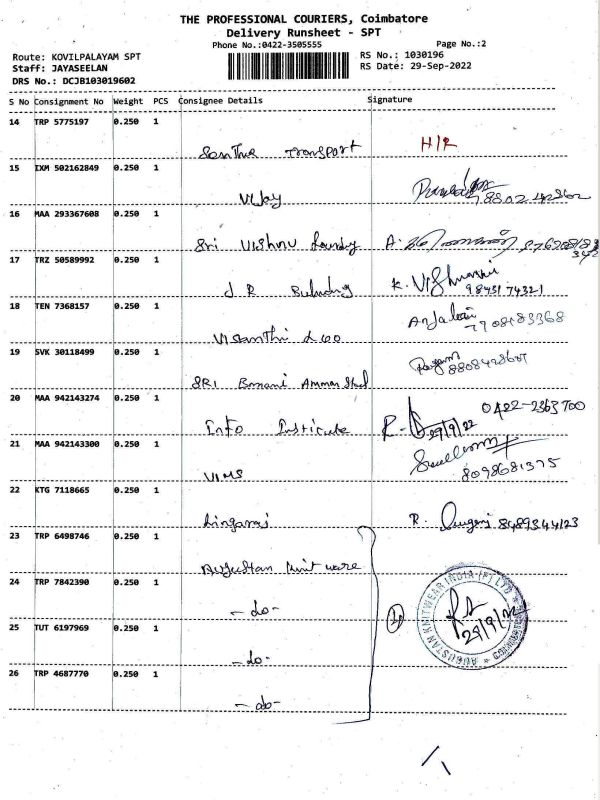 THE PROFESSIONAL COURIERS, Coimbatore
Delivery Runsheet - SPT
Phone No.:0422-3505555 Page No.:2
Route: KOVILPALAYAM SPT RS No.: 1030196
Staff: JAYASEELAN RS Date: 29-Sep-2022
DRS No.: DCJB103019602
S No Consignment No Weight PCS Consignee Details Signature
14 TRP 5775197 0.250 1
Transport H/R
15 IXM 502162849 0.250 1
Vijay
16 MAA 293367608 0.250 1
Sri Vishnu A.
17 TRZ 50589992 0.250 1
J R K. 9843174321
18 TEN 7368157 0.250 1
7908183368
19 SVK 30118499 0.250 1
SRI Amman
20 MAA 942143274 0.250 1
Info Institute R. 29/9/22 0422-2363700
21 MAA 942143300 0.250 1
VIMS 8098681375
22 KTG 7118665 0.250 1
Lingaraj R. 8489344123
23 TRP 6498746 0.250 1
Augustan Knit ware
24 TRP 7842390 0.250 1
-do-
AUGUSTAN KNITWEAR INDIA (P) LTD
29/9/22
25 TUT 6197969 0.250 1
-do-
26 TRP 4687770 0.250 1
-do-